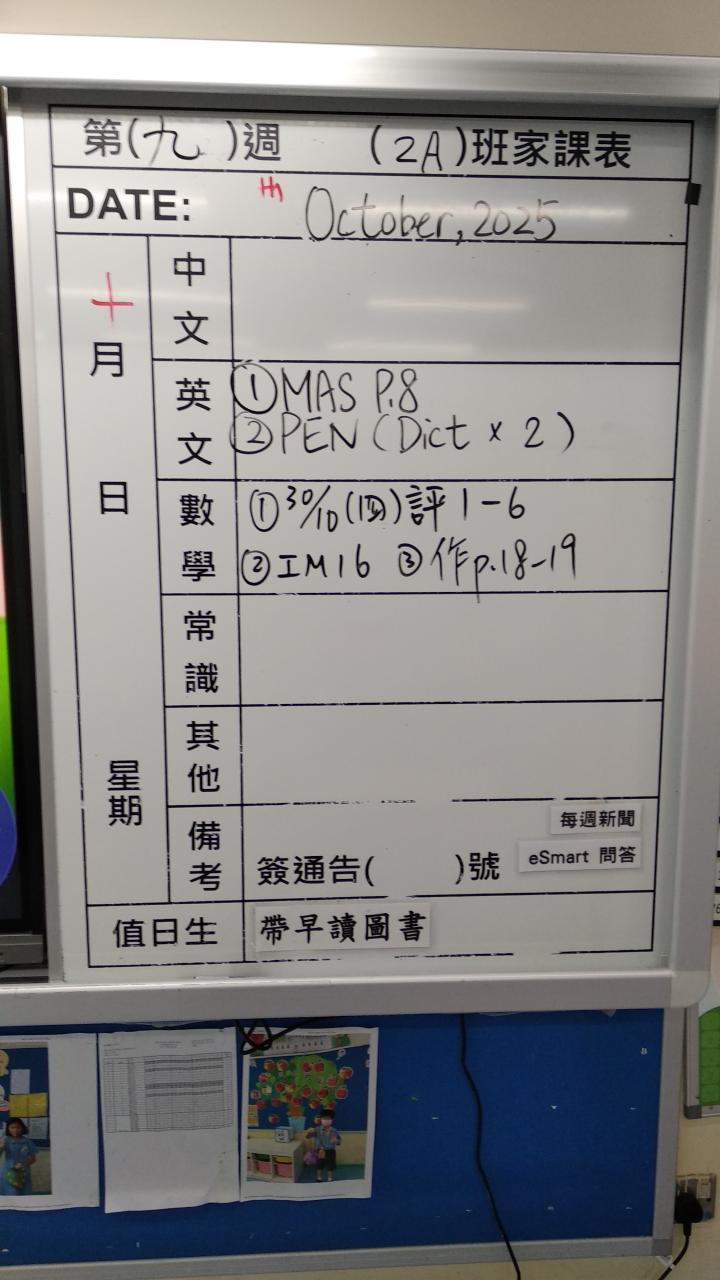 第(九 )週 (2A)班家課表
DATE: th October, 2025
十月 日 星期
中文
英文 ①MAS P.8
②PEN (Dict × 2)
數學 ①30/10(四)評1-6
②IM16 ③作p.18-19
常識
其他
備考 每週新聞
簽通告( )號 eSmart 問答
值日生 帶早讀圖書